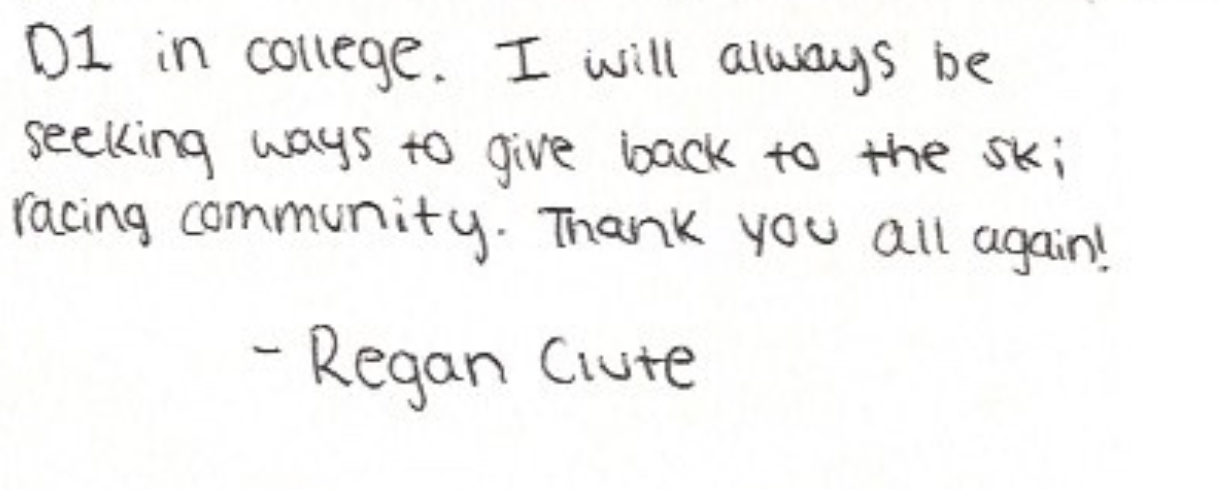 D1 in college. I will always be
seeking ways to give back to the ski
racing community. Thank you all again!
- Regan Clute